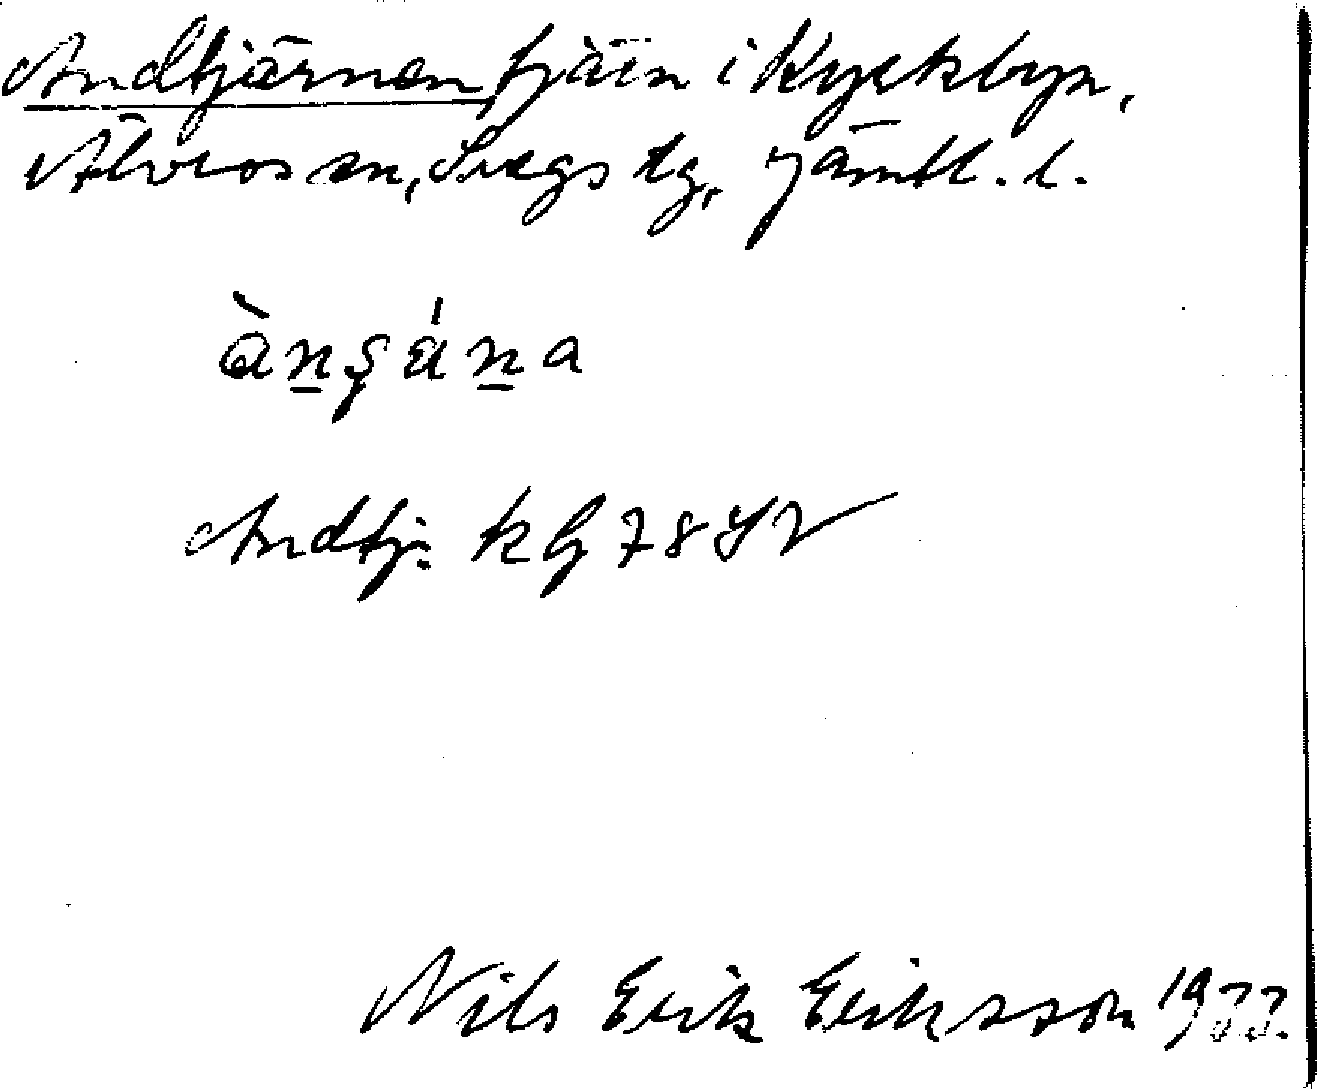 Andtjärnen tjärn i Kyrkbyn,
Älvros sn, Svegs tg, Jämtl. l.
àn̲şán̲a
Andtj. k G 78 SV
Nils Erik Eriksson 1977.